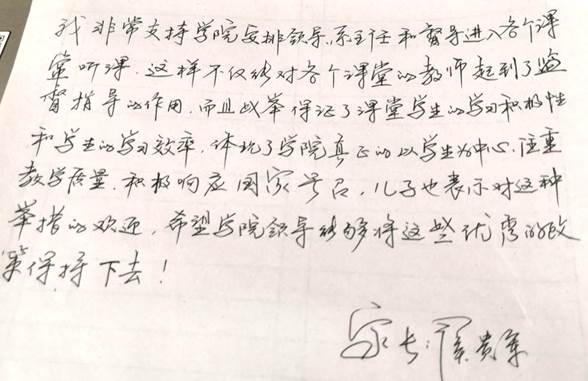 我非常支持学院安排领导、系主任和督导进入各个课
堂听课。这样不仅能对各个课堂的教师起到了监
督指导的作用,而且此举保证了课堂学生的学习积极性
和学生的学习效率,体现了学院真正的以学生为中心,注重
教学质量,积极响应国家号召,儿子也表示对这种
举措的欢迎,希望学院领导能够将这些优秀的政
策保持下去!
家长:贵军